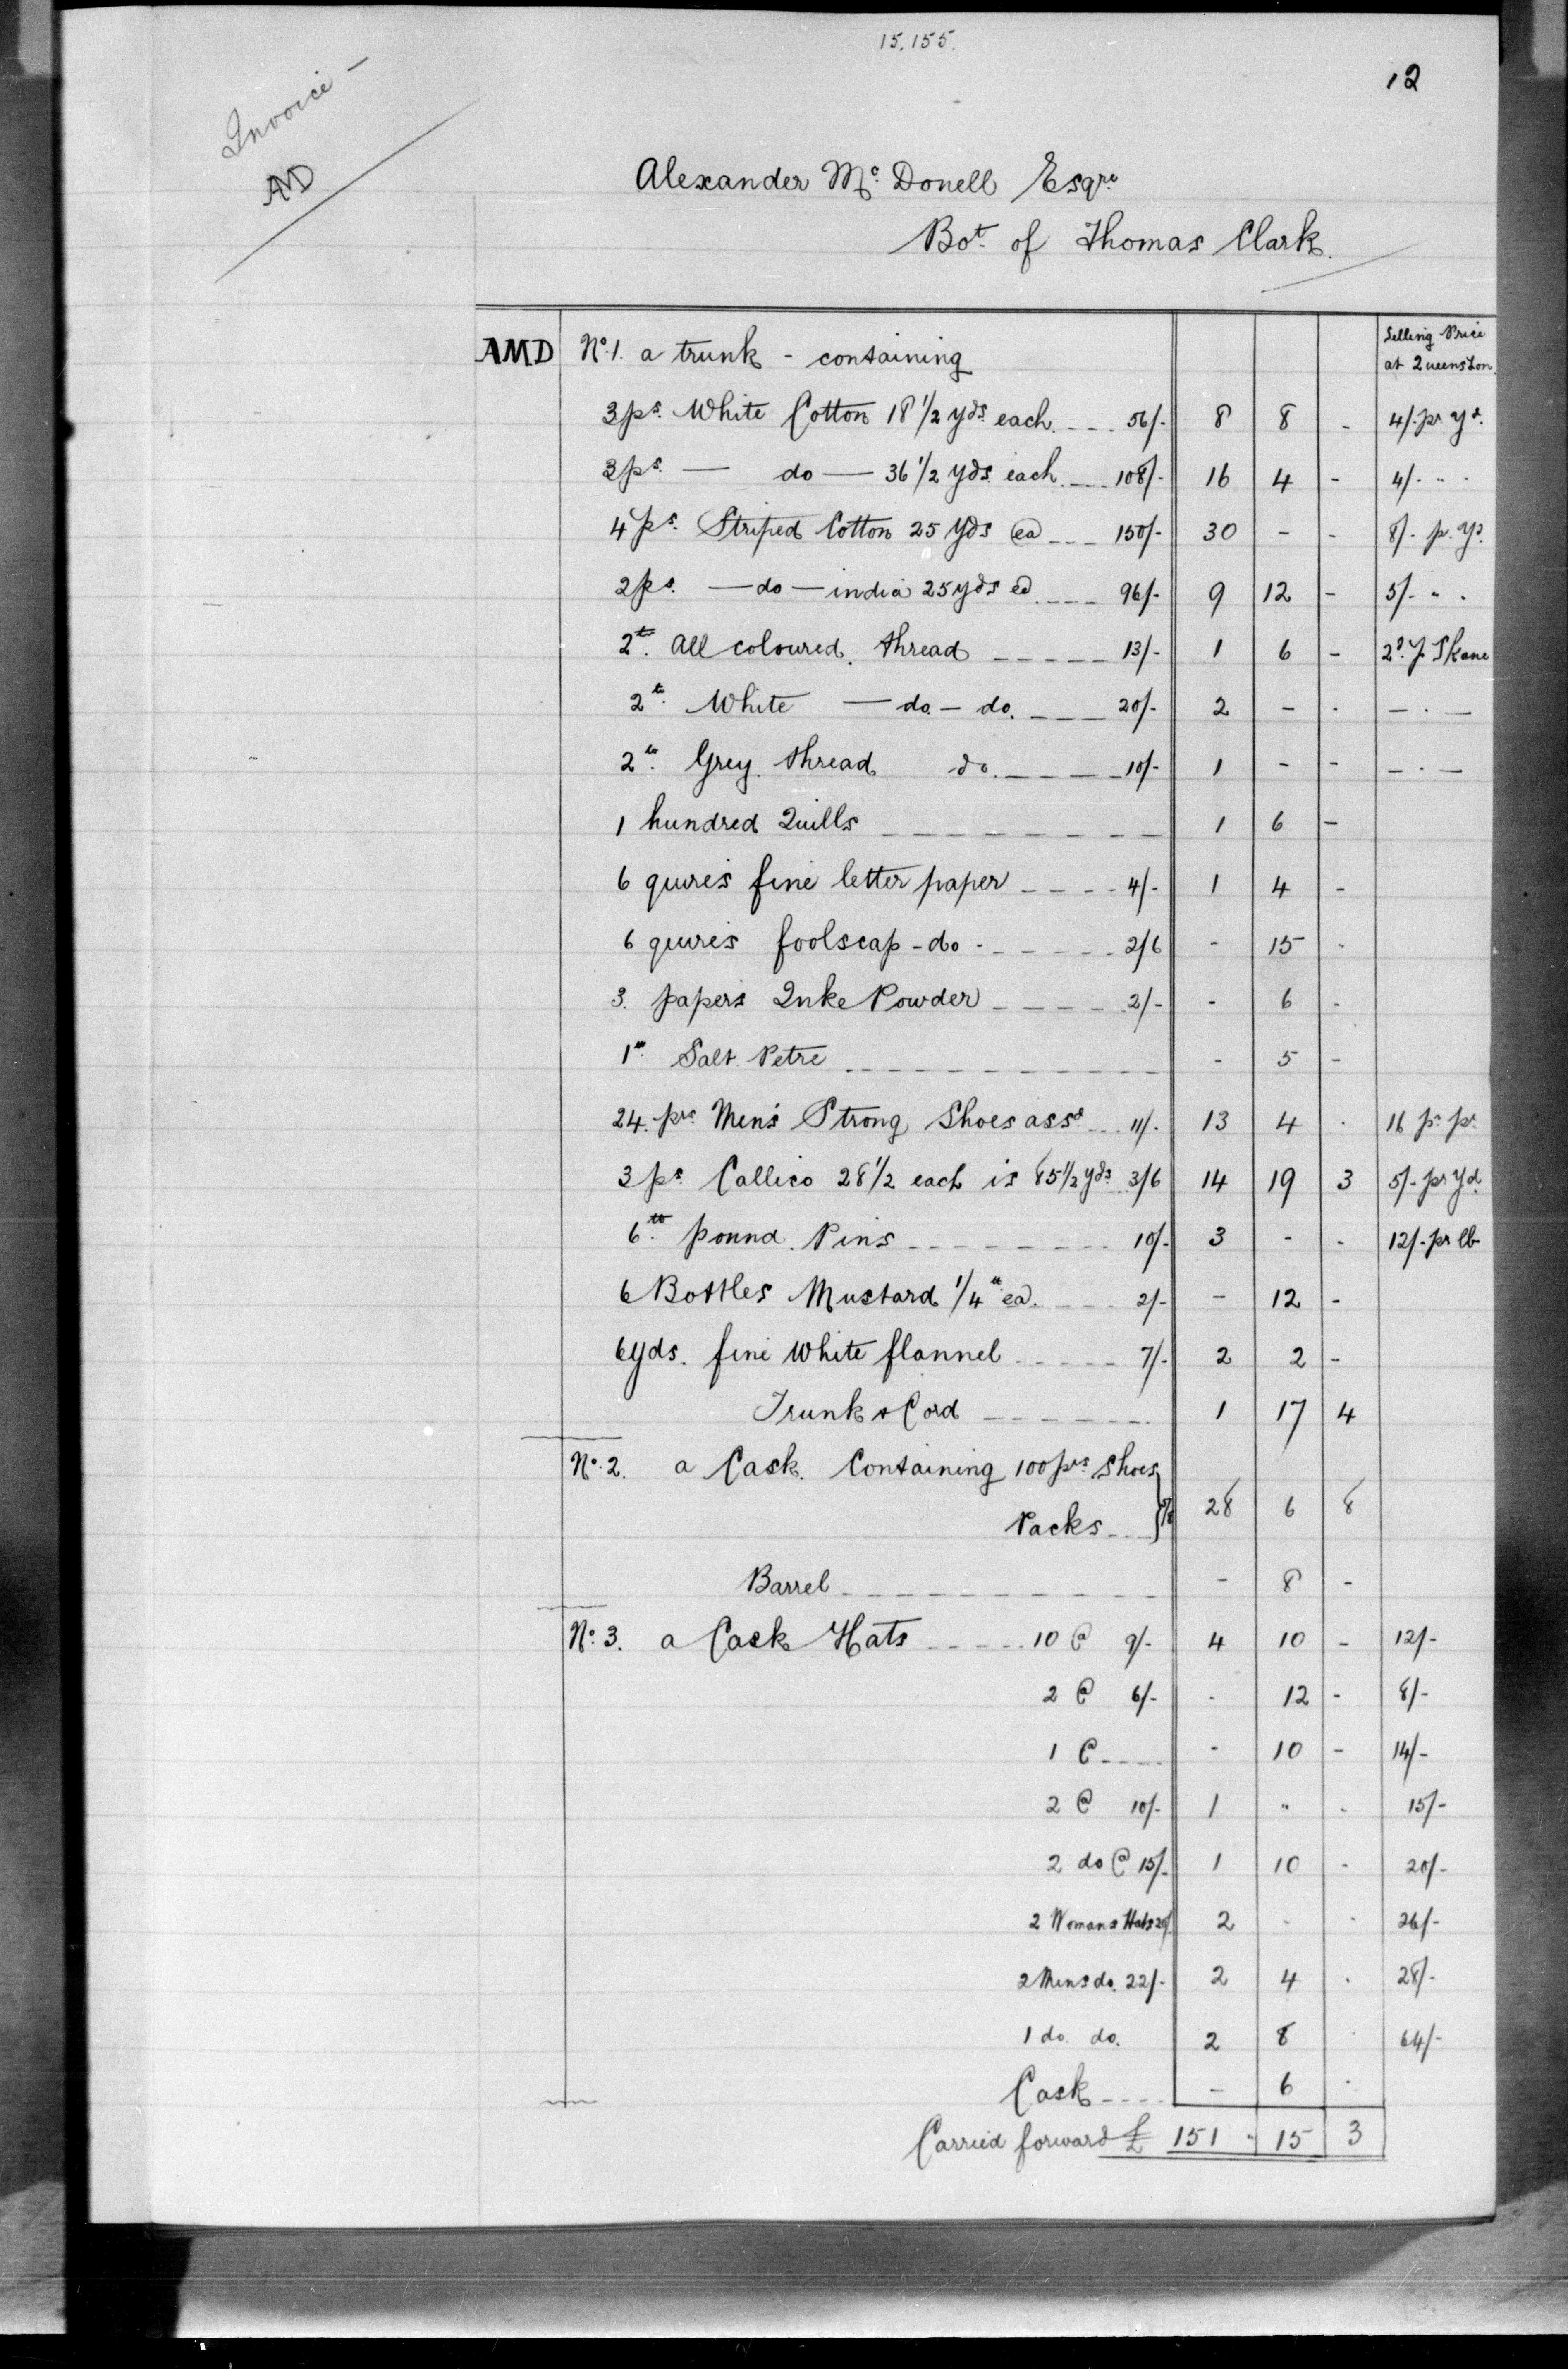 15,155.
12
Invoice —
AMD
Alexander Mc. Donell Esqre
Bot. of Thomas Clark.
Selling Price
at Queenston.
AMD No. 1. a trunk - containing
3 ps. White Cotton 18 1/2 yds. each. 56/- 8 8 - 4/- pr yd.
3 ps. — do — 36 1/2 yds each. 108/- 16 4 - 4/- " "
4 ps. Striped Cotton 25 yds ea 150/- 30 - - 8/- p. yd.
2 ps. — do — india 25 yds ea 96/- 9 12 - 5/- " "
2 lb. All coloured thread 13/- 1 6 - 2d. Skane
2 lb. White — do. — do. 20/- 2 - - — . —
2 lb. Grey thread do. 10/- 1 - - — . —
1 hundred Quills 1 6 -
6 quires fine letter paper 4/- 1 4 -
6 quires foolscap - do - 2/6 - 15 -
3. papers Inke Powder 2/- - 6 -
1 lb. Salt Petre - 5 -
24. prs. Men's Strong Shoes assd 11/- 13 4 - 16 pr. pr.
3 ps. Callico 28 1/2 each is 85 1/2 yds. 3/6 14 19 3 5/- pr yd.
6 lb. pound Pins 10/- 3 - - 12/- pr lb
6 Bottles Mustard 1/4 lb ea. 2/- - 12 -
6 yds. fine White flannel 7/- 2 2 -
Trunk & Cord 1 17 4
No. 2. a Cask. Containing 100 prs Shoes
Packs 28 6 8
Barrel - 8 -
No. 3. a Cask Hats 10 @ 9/- 4 10 - 12/-
2 @ 6/- - 12 - 8/-
1 @ - 10 - 14/-
2 @ 10/- 1 " - 15/-
2 do @ 15/- 1 10 - 20/-
2 Womans Hats 20/- 2 - - 26/-
2 Mens do. 22/- 2 4 - 28/-
1 do. do. 2 8 - 64/-
Cask - 6 -
Carried forward £ 151 " 15 3